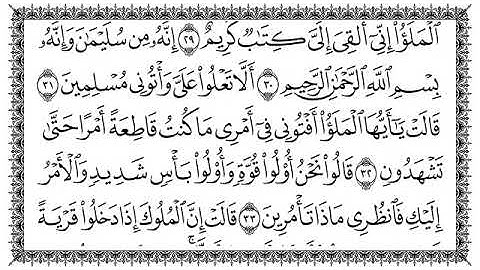 ٱلۡمَلَؤُاْ إِنِّيٓ أُلۡقِيَ إِلَيَّ كِتَٰبٞ كَرِيمٌ ٢٩ إِنَّهُۥ مِن سُلَيۡمَٰنَ وَإِنَّهُۥ
بِسۡمِ ٱللَّهِ ٱلرَّحۡمَٰنِ ٱلرَّحِيمِ ٣٠ أَلَّا تَعۡلُواْ عَلَيَّ وَأۡتُونِي مُسۡلِمِينَ ٣١
قَالَتۡ يَٰٓأَيُّهَا ٱلۡمَلَؤُاْ أَفۡتُونِي فِيٓ أَمۡرِي مَا كُنتُ قَاطِعَةً أَمۡرًا حَتَّىٰ
تَشۡهَدُونِ ٣٢ قَالُواْ نَحۡنُ أُوْلُواْ قُوَّةٖ وَأُوْلُواْ بَأۡسٖ شَدِيدٖ وَٱلۡأَمۡرُ
إِلَيۡكِ فَٱنظُرِي مَاذَا تَأۡمُرِينَ ٣٣ قَالَتۡ إِنَّ ٱلۡمُلُوكَ إِذَا دَخَلُواْ قَرۡيَةً